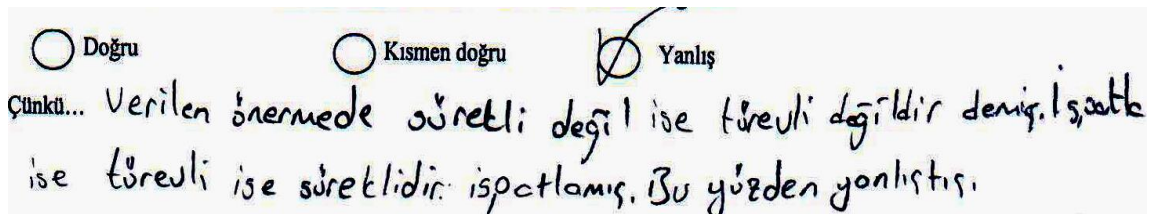 Doğru Kısmen doğru Yanlış
Çünkü... Verilen önermede sürekli değil ise türevli değildir demiş. İspatta
ise türevli ise süreklidir. ispatlamış. Bu yüzden yanlıştır.